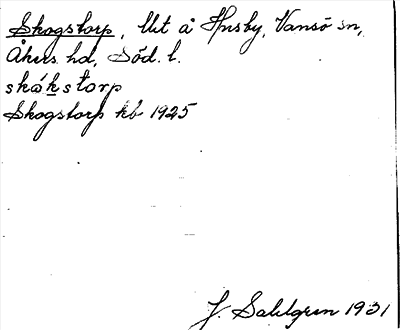 Skogstorp, lht å Husby, Vansö sn,
Åkers hd, Söd. l.
skåkstorp
Skogstorp kb 1925
J. Sahlgren 1931